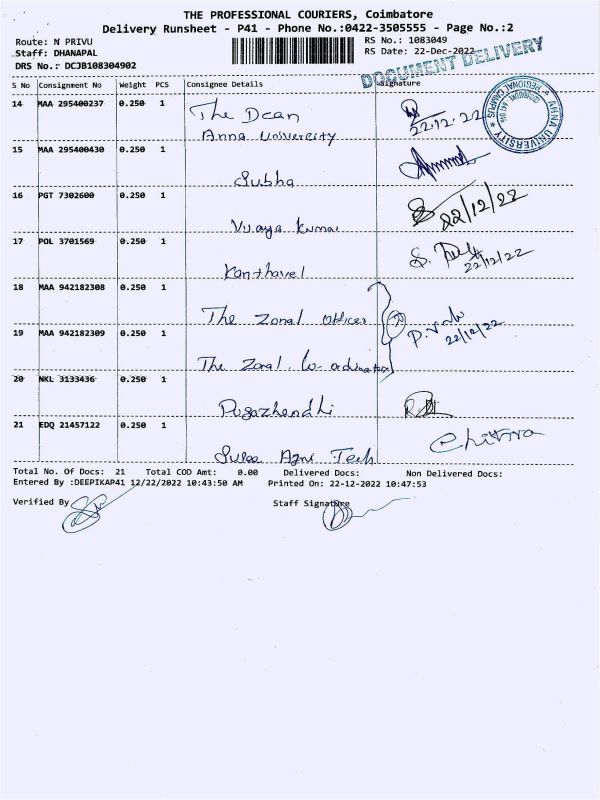 THE PROFESSIONAL COURIERS, Coimbatore
Delivery Runsheet - P41 - Phone No.:0422-3505555 - Page No.:2
Route: N PRIVU RS No.: 1083049
Staff: DHANAPAL RS Date: 22-Dec-2022
DRS No.: DCJB108304902
DOCUMENT DELIVERY
S No Consignment No Weight PCS Consignee Details Signature
14 MAA 295400237 0.250 1 The Dean
Anna University
22.12.22
ANNA UNIVERSITY REGIONAL CAMPUS
15 MAA 295400430 0.250 1
Subha
16 PGT 7302600 0.250 1
Vijaya Kumar 22/12/22
17 POL 3701569 0.250 1
Kanthavel 22/12/22
18 MAA 942182308 0.250 1
The Zonal Officer
19 MAA 942182309 0.250 1 22/12/22
The Zonal Co-ordinator
20 NKL 3133436 0.250 1
Pugazhendhi
21 EDQ 21457122 0.250 1 Chitra
Agri Tech
Total No. Of Docs: 21 Total COD Amt: 0.00 Delivered Docs: Non Delivered Docs:
Entered By :DEEPIKAP41 12/22/2022 10:43:50 AM Printed On: 22-12-2022 10:47:53
Verified By Staff Signature